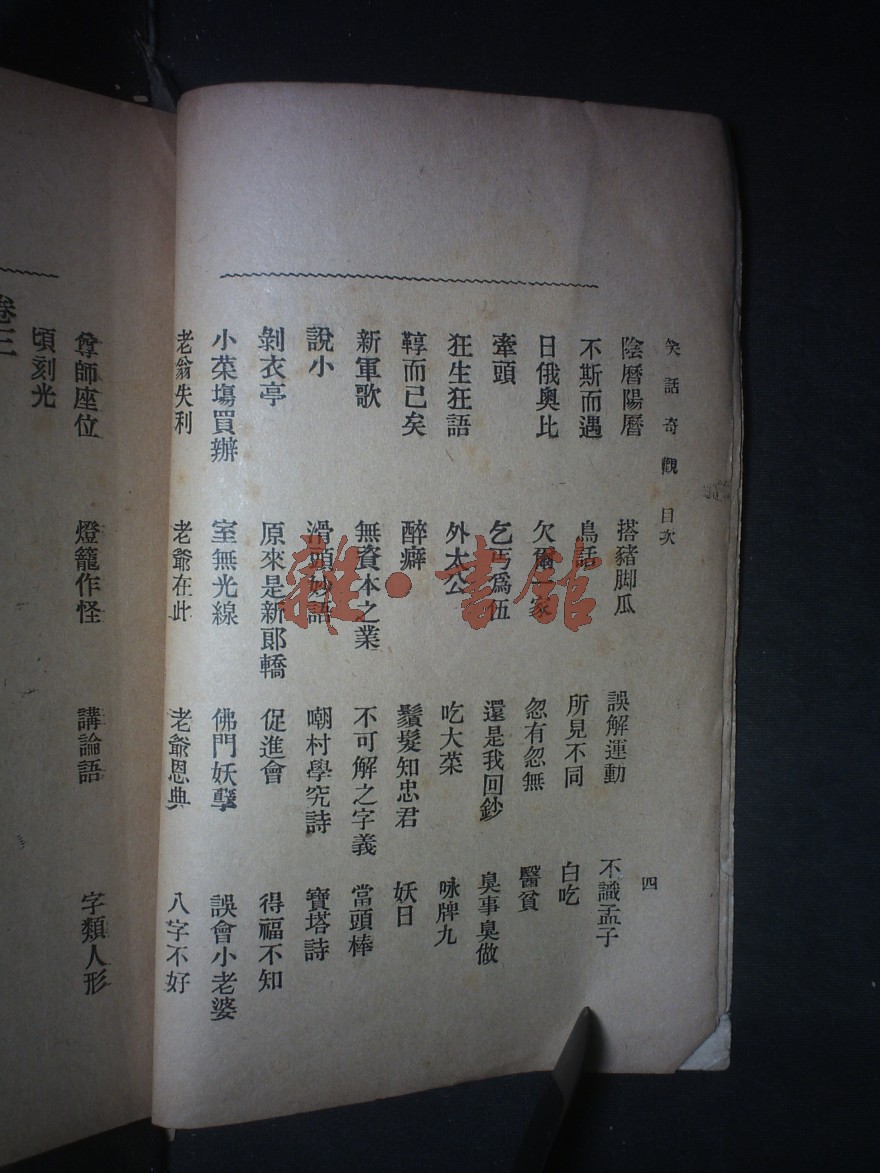 笑話奇觀 目次 四
陰曆陽曆 搭豬脚瓜 誤解運動 不識孟子
不斯而遇 鳥話 所見不同 白吃
日俄奧比 欠爾一家 忽有忽無 醫貧
牽頭 乞丐爲伍 還是我回鈔 臭事臭做
狂生狂語 外太公 吃大菜 咏牌九
鞟而已矣 醉癖 鬚髮知忠君 妖日
新軍歌 無資本之業 不可解之字義 當頭棒
說小 滑頭妙語 嘲村學究詩 寶塔詩
剝衣亭 原來是新郎轎 促進會 得福不知
小菜塲買辦 室無光線 佛門妖孽 誤會小老婆
老翁失利 老爺在此 老爺恩典 八字不好
尊師座位 燈籠作怪 講論語 字類人形
頃刻光
卷三
雜·書館